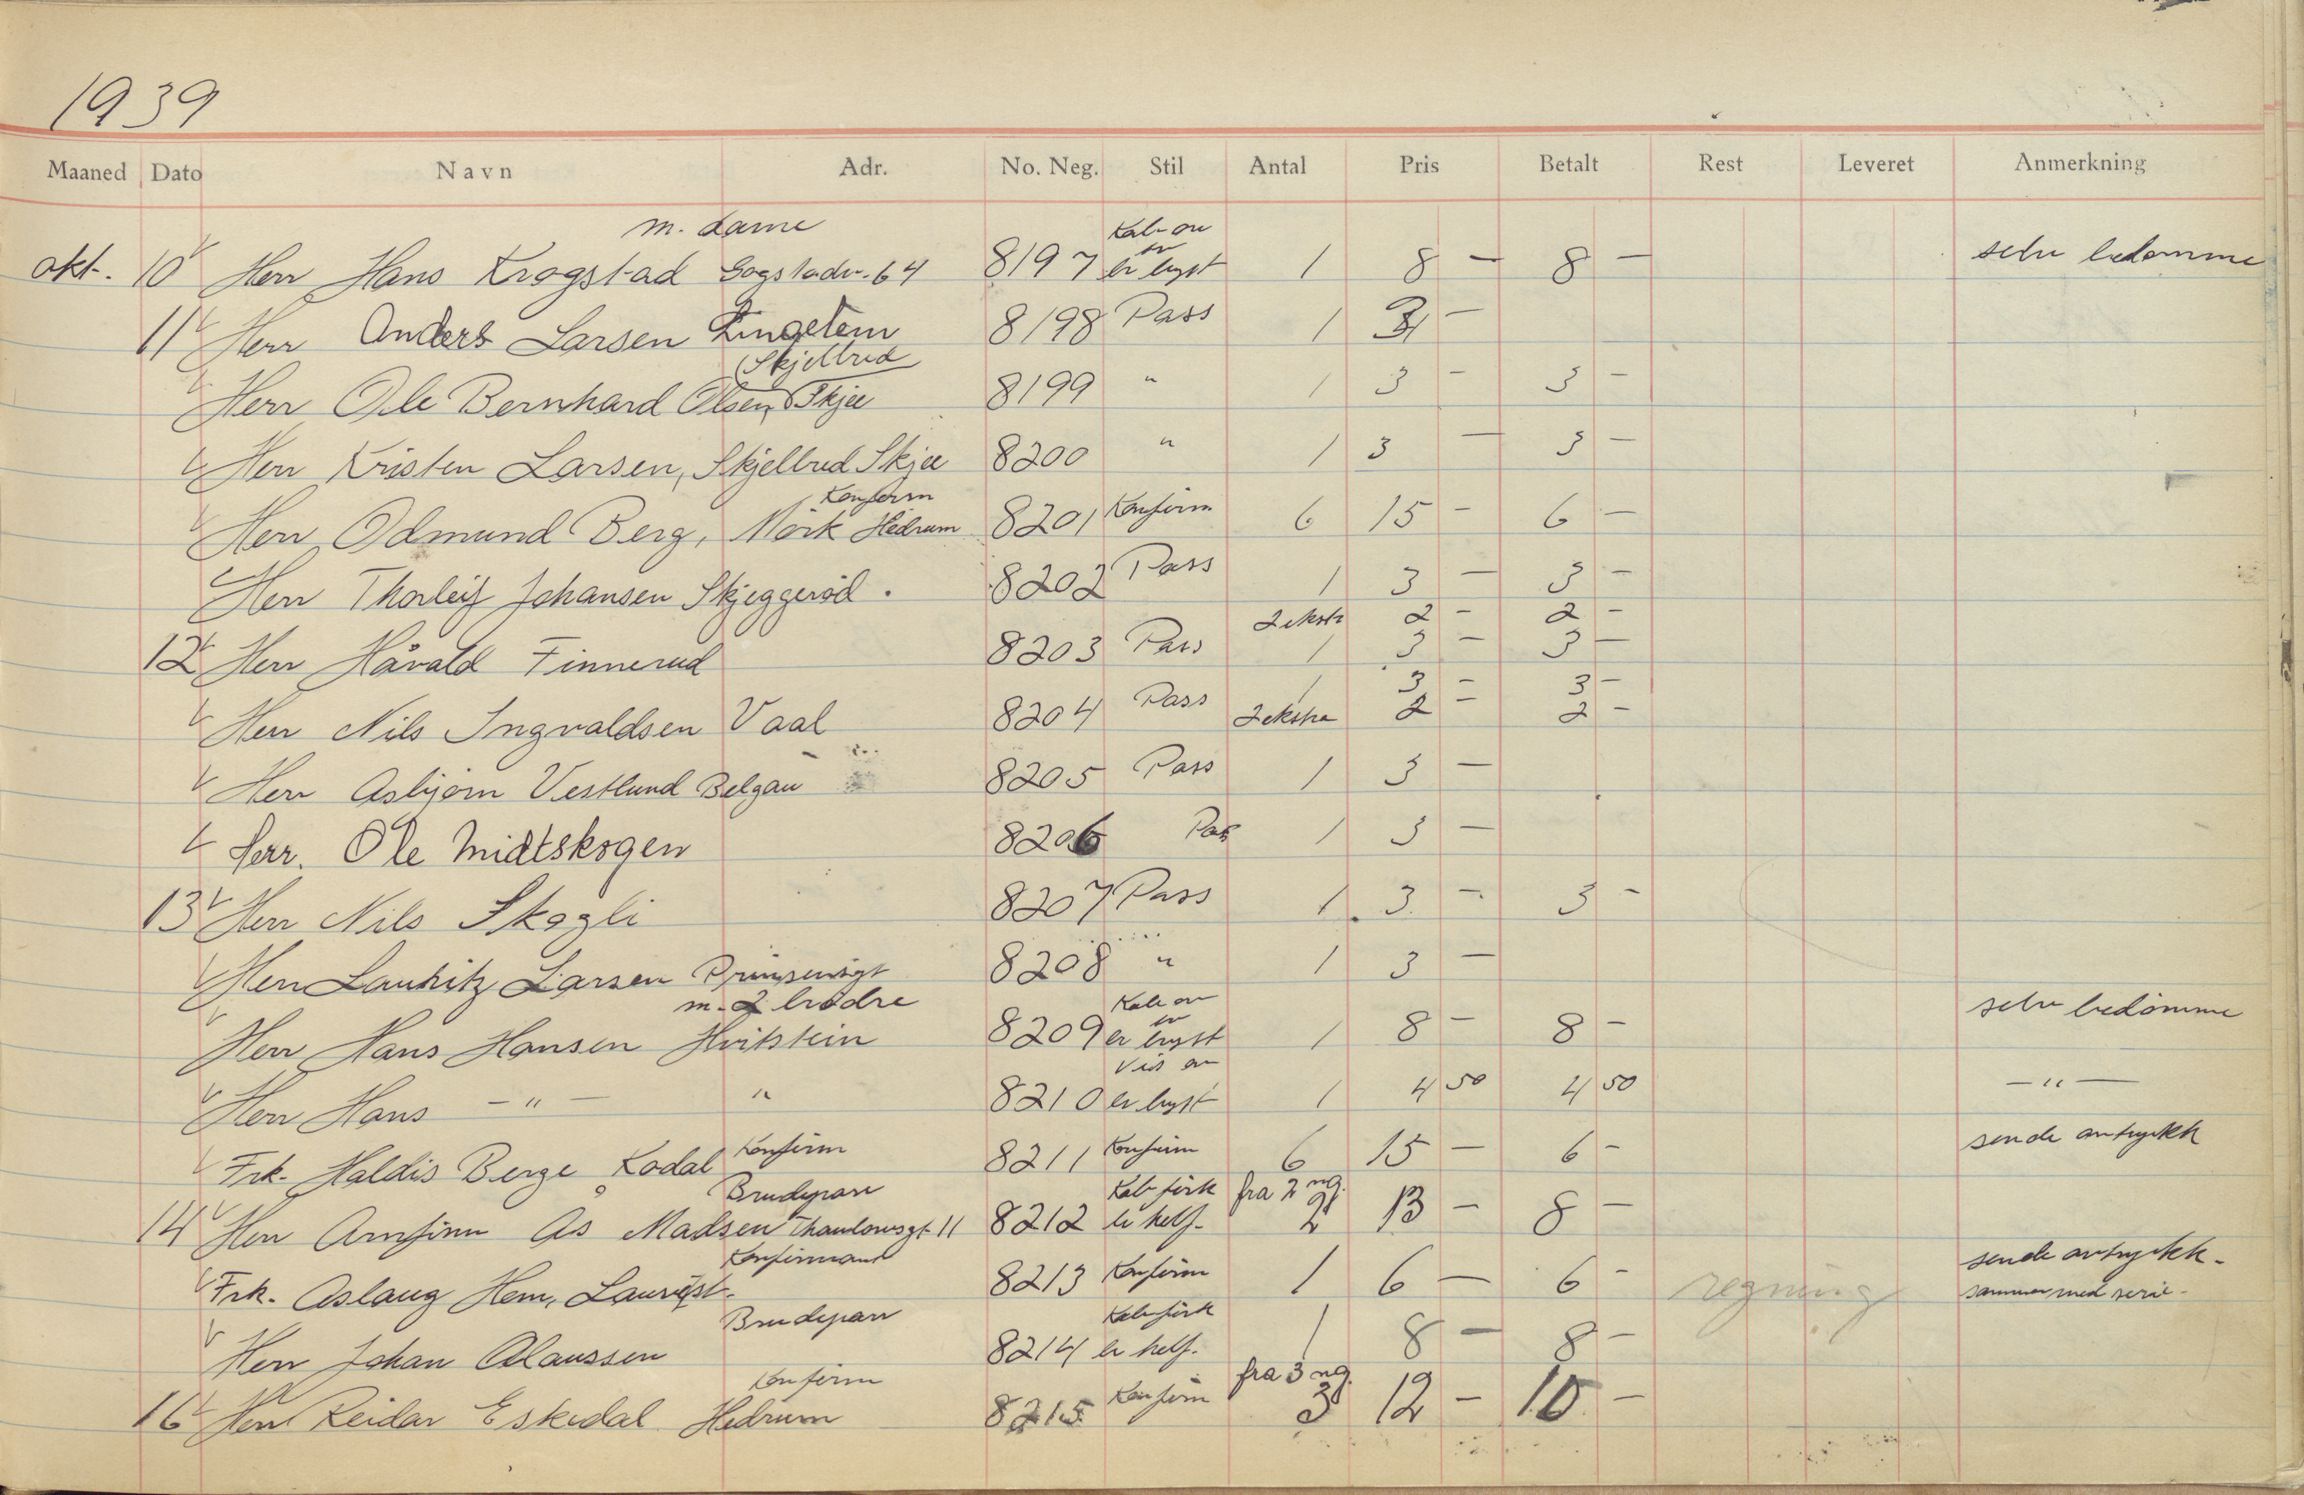 1939
Maaned Dato Navn Adr. No. Neg. Stil Antal Pris Betalt Rest Leveret Anmerkning
m. dame Kab on
okt. 10 Herr Hans Krogstad Gogstadv. 64 8197 er lyst 1 8 - 8 - selv bedømme
11 Herr Anders Larsen 8198 Pass 1 3 -
Skjelbred
Herr Ole Bernhard Olsen, Skjee 8199 " 1 3 - 3 -
Herr Kristen Larsen, Skjelbred Skjee 8200 " 1 3 - 3 -
Konfirm
Herr Odmund Berg, Mørk Hedrum 8201 Konfirm 6 15 - 6 -
Herr Thorleif Johansen Skjeggerød. 8202 Pass 1 3 - 3 -
2 ekstr 2 - 2 -
12 Herr Håvald Finnerud 8203 Pass 1 3 - 3 -
1 3 - 3 -
Herr Nils Ingvaldsen Vaal 8204 Pass 2 ekstra 2 - 2 -
Herr Asbjørn Vestlund Belgau 8205 Pass 1 3 -
Herr. Ole Midtskogen 8206 Pass 1 3 -
13 Herr Nils Skogli 8207 Pass 1 3 - 3 -
Herr Lauritz Larsen Prinsensgt 8208 " 1 3 -
m. 2 brødre Kab on
Herr Hans Hansen Hvitstein 8209 er lyst 1 8 - 8 - selv bedømme
Vis on
Herr Hans - " - " 8210 er lyst 1 4 50 4 50 - " -
Frk. Haldis Berge Kodal Konfirm 8211 Konfirm 6 15 - 6 - sende avtrykk
Brudepare Kab firk fra 2 ng.
14 Herr Arnfinn Ås Madsen Thaulowsgt 11 8212 er helf. 2 13 - 8 -
Konfirmant
Frk. Aslaug Hem, Laurist. 8213 Konfirm 1 6 - 6 - regning sende avtrykk.
sammen med serie.
Brudepar Kab firk
Herr Johan Olaussen 8214 er helf. 1 8 - 8 -
Konfirm fra 3 ng.
16 Herr Reidar Eskedal Hedrum 8215 Konfirm 3 12 - 10 -